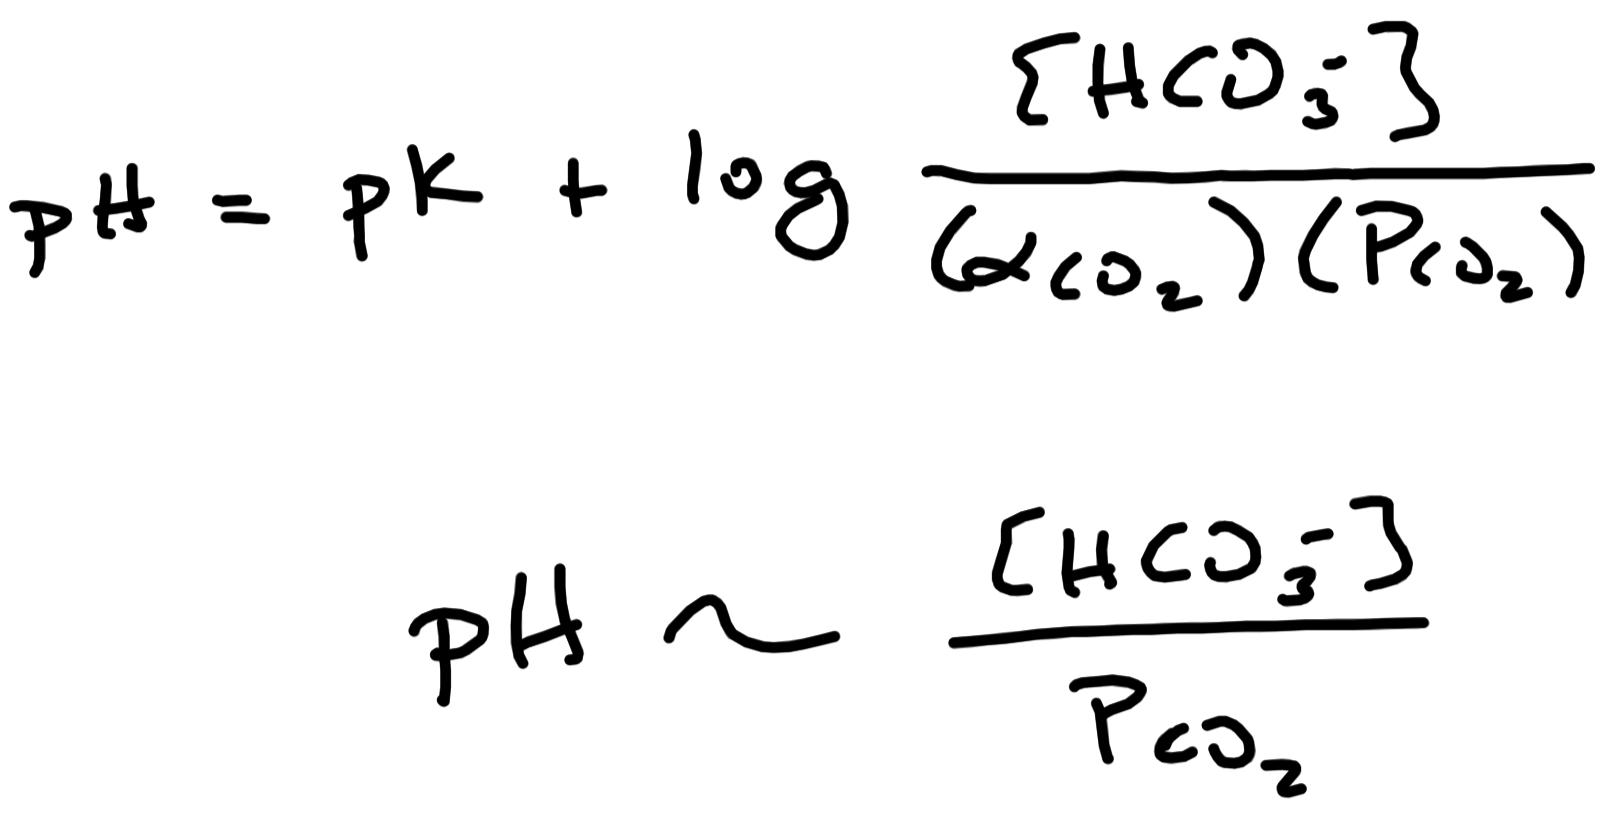 pH = pK + log [HCO₃⁻] / (αco₂)(Pco₂)
pH ~ [HCO₃⁻] / Pco₂